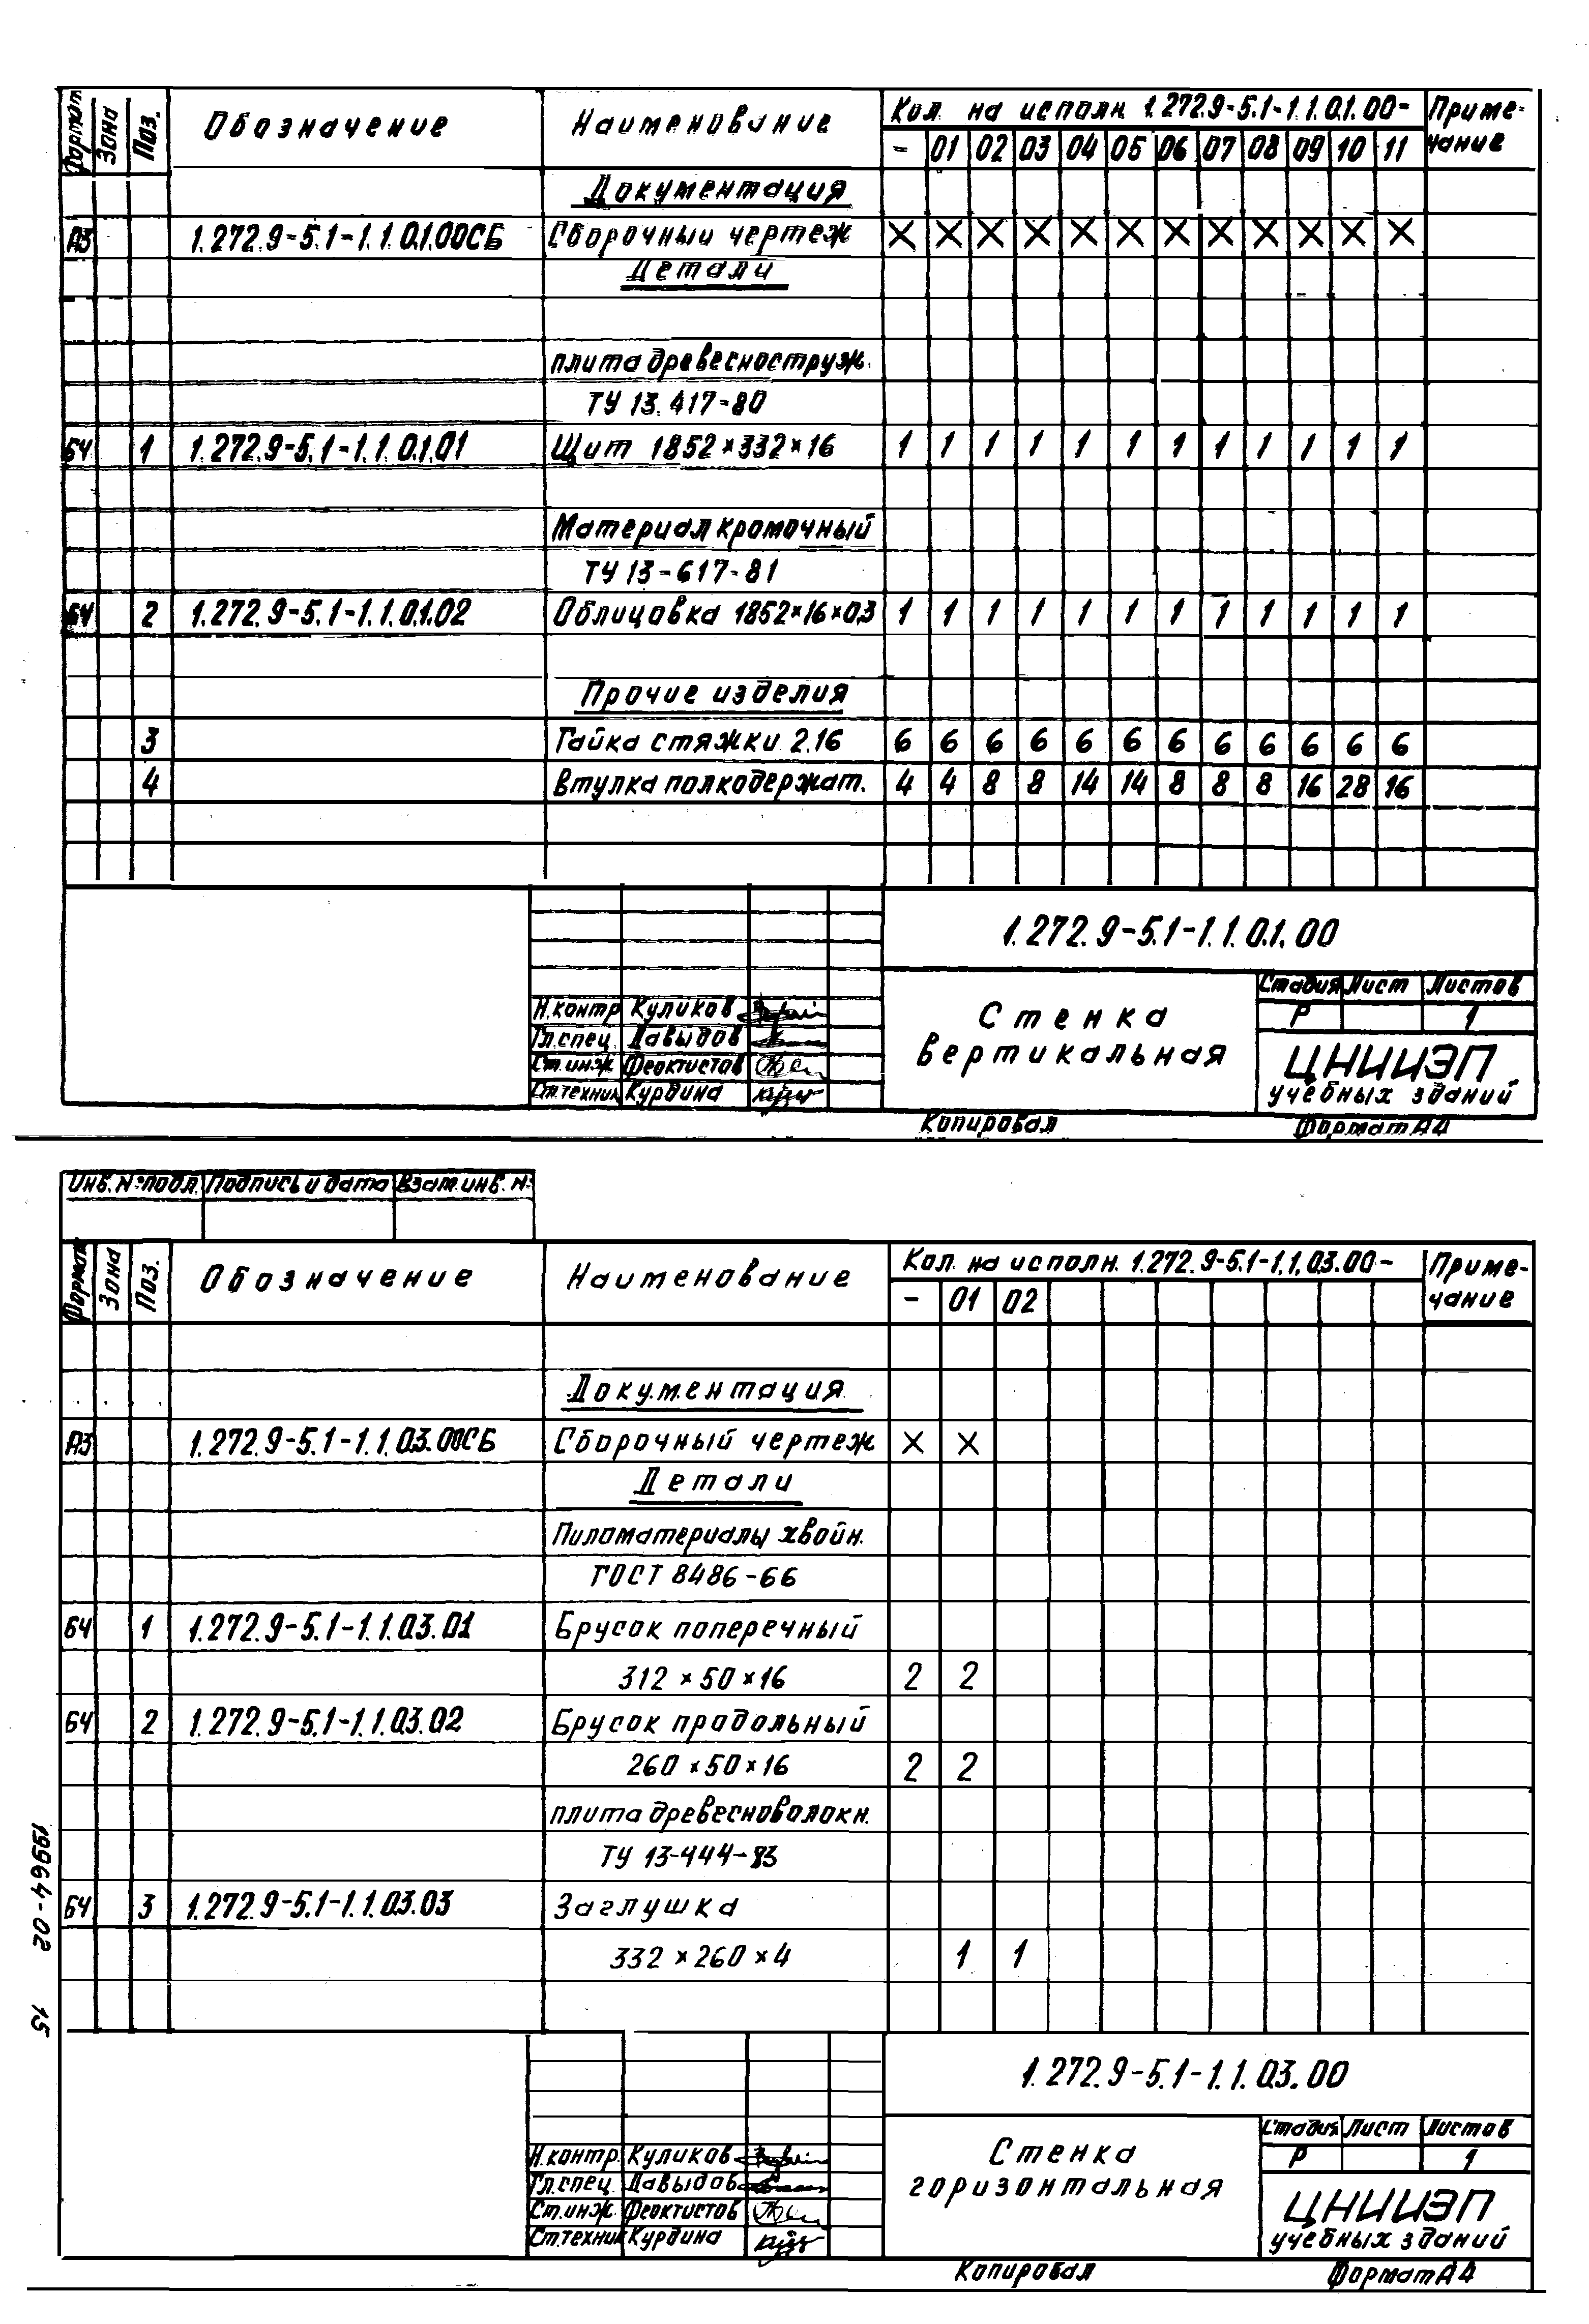 Формат Зона Поз. Обозначение Наименование Кол. на исполн. 1.272.9-5.1-1.1.01.00- Приме-
чание
- 01 02 03 04 05 06 07 08 09 10 11
Документация
А3 1.272.9-5.1-1.1.01.00СБ Сборочный чертеж X X X X X X X X X X X X
Детали
плита древесностружк.
ТУ 13.417-80
БЧ 1 1.272.9-5.1-1.1.01.01 Щит 1852×332×16 1 1 1 1 1 1 1 1 1 1 1 1
Материал кромочный
ТУ 13-617-81
БЧ 2 1.272.9-5.1-1.1.01.02 Облицовка 1852×16×0,3 1 1 1 1 1 1 1 1 1 1 1 1
Прочие изделия
3 Гайка стяжки 2.16 6 6 6 6 6 6 6 6 6 6 6 6
4 Втулка полкодержат. 4 4 8 8 14 14 8 8 8 16 28 16
1.272.9-5.1-1.1.01.00
Стенка
вертикальная
Стадия Лист Листов
Р 1
Н.контр Куликов
Гл.спец. Давыдов
Ст.инж. Феоктистов
Ст.техник Курдина
ЦНИИЭП
учебных зданий
Копировал Формат А4
Инв. № подл. Подпись и дата Взам.инв. №
Формат Зона Поз. Обозначение Наименование Кол. на исполн. 1.272.9-5.1-1.1.03.00- Приме-
чание
- 01 02
Документация
А3 1.272.9-5.1-1.1.03.00СБ Сборочный чертеж X X
Детали
Пиломатериалы хвойн.
ГОСТ 8486-66
БЧ 1 1.272.9-5.1-1.1.03.01 Брусок поперечный
312×50×16 2 2
БЧ 2 1.272.9-5.1-1.1.03.02 Брусок продольный
260×50×16 2 2
плита древесноволокн.
ТУ 13-444-83
БЧ 3 1.272.9-5.1-1.1.03.03 Заглушка
332×260×4 1 1
19964-02 15
1.272.9-5.1-1.1.03.00
Стенка
горизонтальная
Стадия Лист Листов
Р 1
Н.контр. Куликов
Гл.спец. Давыдов
Ст.инж. Феоктистов
Ст.техник Курдина
ЦНИИЭП
учебных зданий
Копировал Формат А4